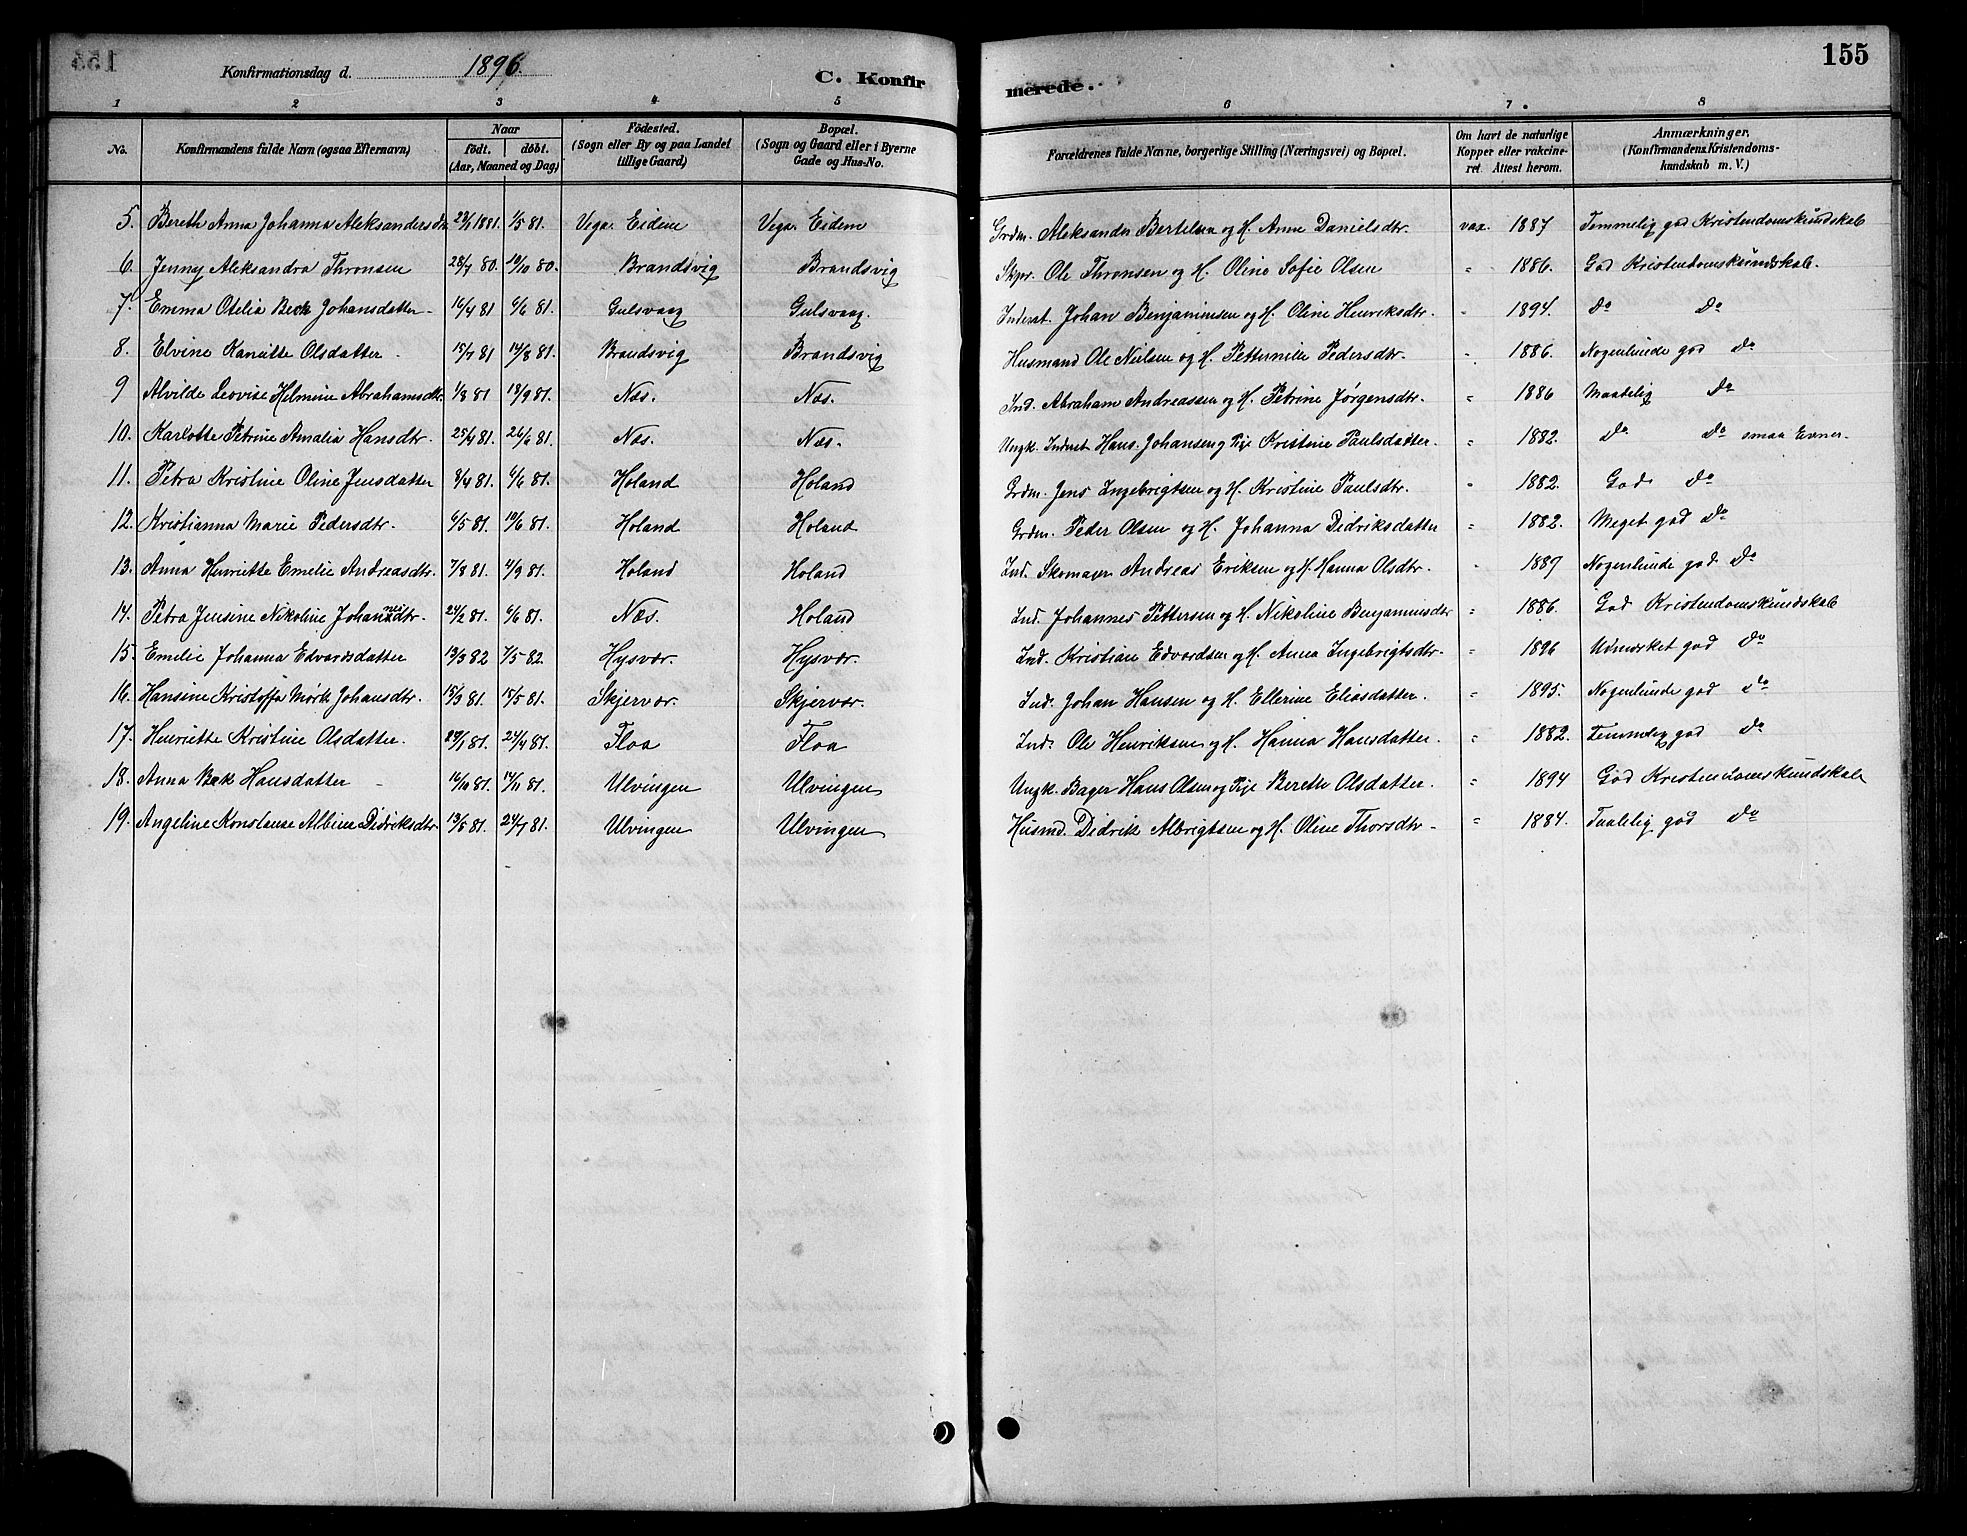 155
Konfirmationsdag d. 1896.
C. Konfirmerede.
1 2 3 4 5 6 7. 8
No. Konfirmandens fulde Navn (ogsaa Efternavn) Naar födt. döbt. (Aar, Maaned og Dag) Födested. (Sogn eller By og paa Landet tillige Gaard) Bopæl. (Sogn og Gaard eller i Byerne Gade og Hus-No. Forældrenes fulde Navne, borgerlige Stilling (Næringsvei) og Bopæl. Om havt de naturlige Kopper eller vakcineret. Attest herom. Anmærkninger. (Konfirmandens Kristendomskundskab m. V.)
5. Bereth Anna Johanna Aleksandersdtr 1881. 1/5 81. Vega. Eidem Vega. Eidem Grdm. Aleksander Bertelsen og H. Anne Danielsdtr. vax. 1887 Temmelig god Kristendomskundskab
6. Jenny Aleksandra Thronsen 28/7 80. 10/10 80. Brandsvig Brandsvig Skpr. Ole Thronsen og H. Oline Sofie Olsen " 1886. God Kristendomskundskab.
7. Emma Otelia Beck Johansdatter 16/4 81 6/6 81. Gulsvaag Gulsvaag. Inderst. Johan Benjaminsen og H. Oline Henriksdtr. " 1894. Do Do
8. Elvine Kanutte Olsdatter 15/7 81 14/8 81. Brandsvig Brandsvig Husmand Ole Nielsen og H. Petternille Pedersdtr. " 1886. Nogenlunde god Do
9 Alvilde Leovise Helmine Abrahamsdtr. 1/8 81 18/9 81. Næs. Næs. Ind. Abraham Andreassen og H. Petrine Jørgensdtr. " 1886 Maadelig Do
10. Karlotte Petrine Amalia Hansdtr. 25/4 81. 26/6 81. Næs. Næs. Ungk. Inderst Hans Johansen og Pige Kristine Paulsdatter. " 1882. Do Do smaa Evner.
11. Petra Kristine Oline Jensdatter 9/4 81. 6/6 81. Holand Holand Grdm. Jens Ingebrigtsen og H. Kristine Paulsdtr. " 1882. God Do
12. Kristianna Marie Pedersdtr. 6/5 81. 10/6 81. Holand Holand Grdm. Peder Olsen og H. Johanna Didriksdatter " 1882. Meget god Do
13. Anna Henriette Emelie Andreasdtr. 7/8 81. 4/9 81. Holand Holand Ind. Skomager Andreas Eriksen og H. Hanna Olsdtr. " 1889 Nogenlunde god Do
14. Petra Jensine Nikoline Johannesdtr. 24/2 81. 6/6 81. Næs. Holand Ind. Johannes Pettersen og H. Nikoline Benjaminsdtr " 1886. God Kristendomskundskab
15. Emelie Johanna Edvardsdatter 13/3 82 7/5 82. Hysvær. Hysvær. Ind. Kristian Edvardsen og H. Anna Ingebrigtsdtr. " 1896 Udmærket god Do
16. Hansine Kristoffa Mørk Johansdtr. 15/3 81. 15/5 81. Skjervær. Skjervær. Ind. Johan Hansen og H. Ellerine Eliasdatter. " 1895. Nogenlunde god Do
17. Henriette Kristine Olsdatter. 81. 24/4 81. Floa Floa Ind. Ole Henriksen og H. Hanna Hansdatter. " 1882. Temmelig god Do
18. Anna Bæk Hansdatter 16/10 81. 14/11 81. Ulvingen Ulvingen Ungk. Bager Hans Olsen og Pige Bereth Olsdatter. " 1894 God Kristendomskundskab
19. Angeline Konstanse Albine Didriksdtr 13/5 81. 24/7 81. Ulvingen Ulvingen Husmd. Didrik Albrigtsen og H. Oline Thorsdtr " 1884. Taalelig god Do